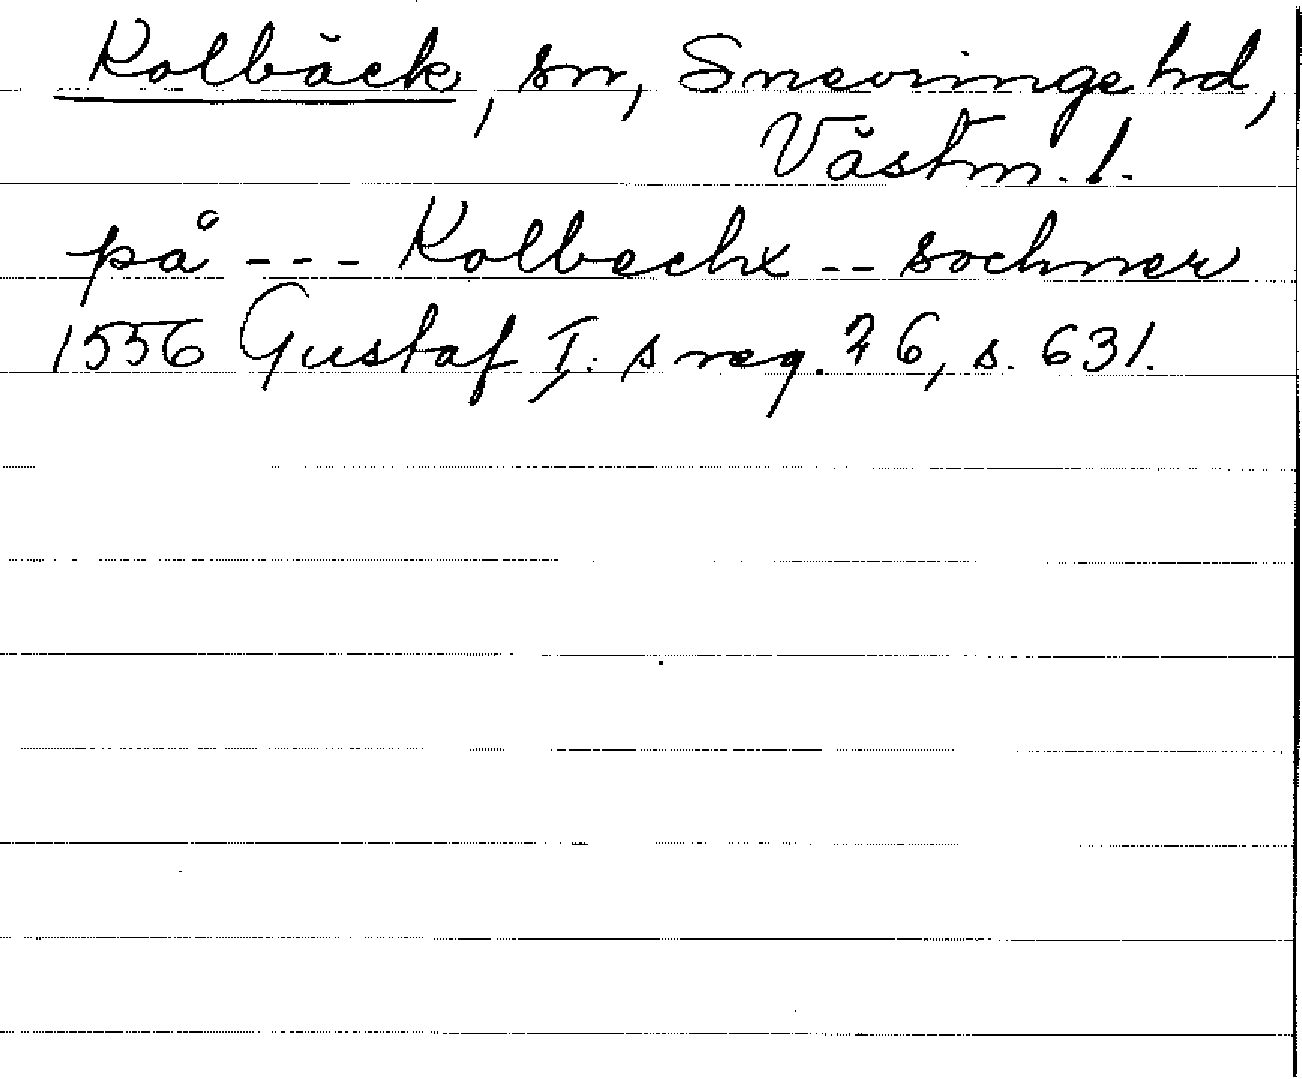 Kolbäck, sn, Snevringe hd,
Västm. l.
på --- Kolbechx -- sochner
1556 Gustaf I: s reg. 26, s. 631.